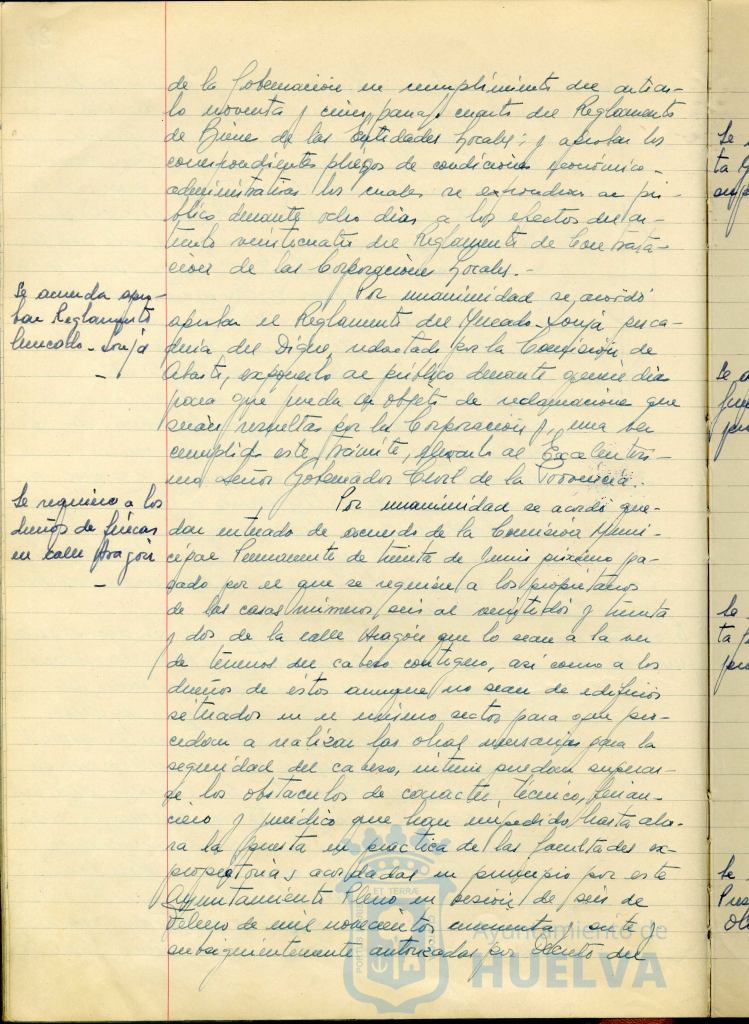 de la Gobernación en cumplimiento del artícu-
lo noventa y cinco, párrafo cuarto del Reglamento
de Bienes de las Entidades Locales; y aprobar los
correspondientes pliegos de condiciones económico-
administrativas los cuales se expondrán al pú-
blico durante ocho días a los efectos del ar-
tículo veinticuatro del Reglamento de Contrata-
ción de las Corporaciones Locales.-
Se acuerda apro-
bar Reglamento
Mercado-Lonja
-
Por unanimidad se acordó
aprobar el Reglamento del Mercado-Lonja pesca-
dería del Dique, redactado por la Comisión de
Abasto, exponerlo al público durante quince días
para que pueda ser objeto de reclamaciones que
serán resueltas por la Corporación y, una vez
cumplido este trámite, elevarlo al Excelentísi-
mo Señor Gobernador Civil de la Provincia.
Se requiere a los
dueños de fincas
en calle Aragón
-
Por unanimidad se acordó que-
dar enterado de acuerdo de la Comisión Muni-
cipal Permanente de treinta de Junio próximo pa-
sado por el que se requiere a los propietarios
de las casas números seis al veintidós y treinta
y dos de la calle Aragón que lo sean a la vez
de terrenos del cabezo contiguo, así como a los
dueños de éstos aunque no sean de edificios
situados en el mismo sector para que pro-
cedan a realizar las obras necesarias para la
seguridad del cabezo, interin puedan superar-
se los obstáculos de carácter técnico, finan-
ciero y jurídico que han impedido hasta aho-
ra la puesta en práctica de las facultades ex-
propiatorias acordadas en principio por este
Ayuntamiento Pleno en sesión de seis de
Febrero de mil novecientos cincuenta y siete y
subsiguientemente autorizadas por Decreto del
Ayuntamiento de
HUELVA